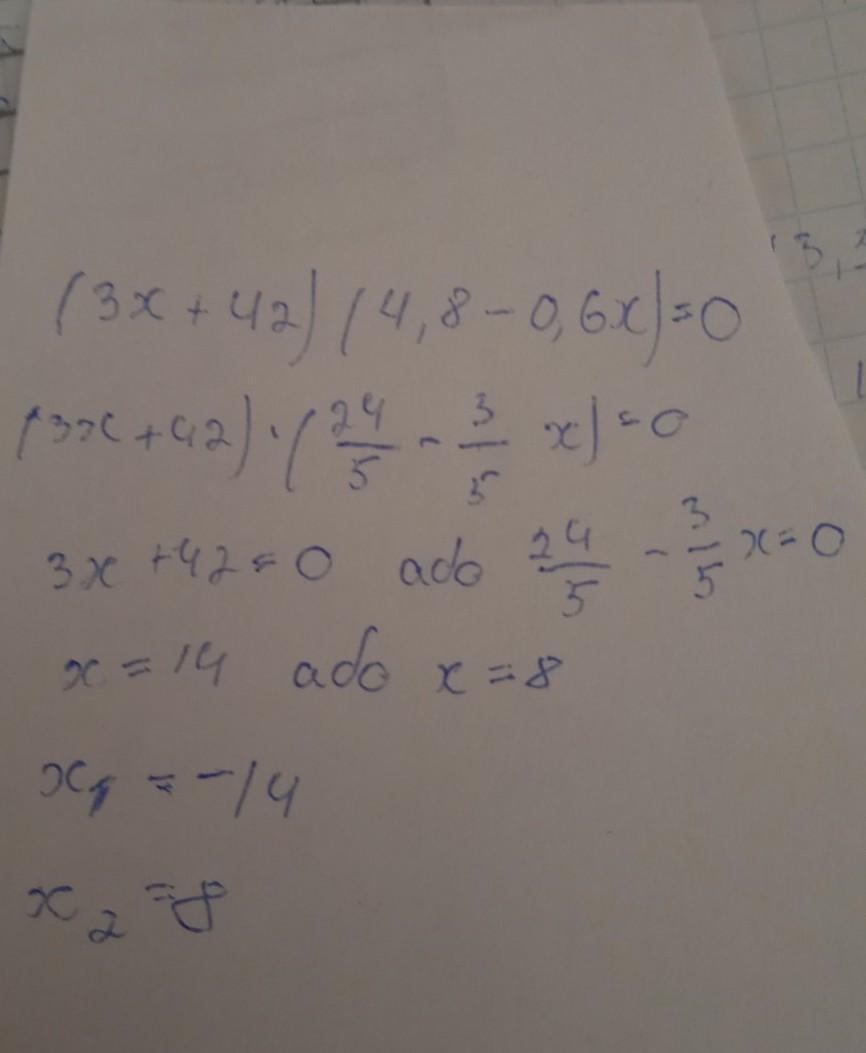 (3x+42)(4,8-0,6x)=0
(3x+42)·(24/5 - 3/5 x)=0
3x+42=0 або 24/5 - 3/5 x=0
x=14 або x=8
x₁=-14
x₂=8
3,
1